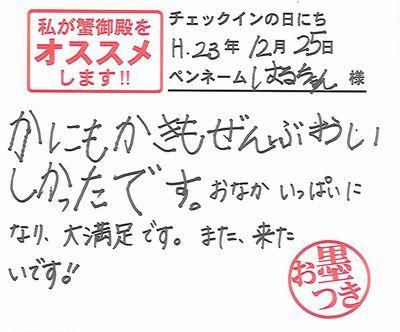 私が蟹御殿を
オススメ
します!!
チェックインの日にち
H.23年 12月 25日
ペンネーム はるちゃん 様
かにもかきもぜんぶおい
しかったです。おなか いっぱいに
なり、大満足です。また、来た
いです!!
お墨
つき